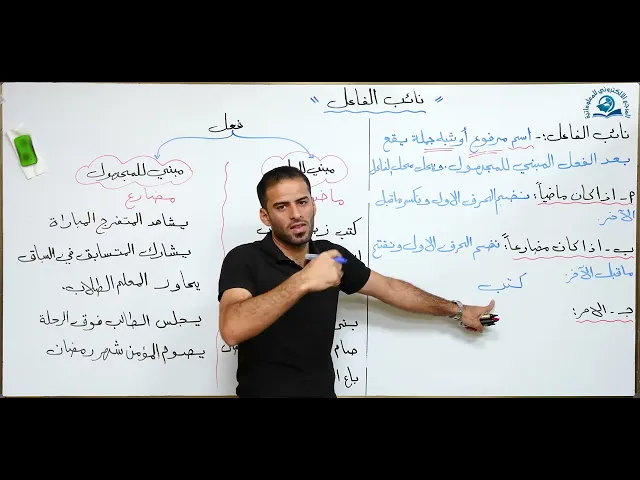 المرجع الالكتروني للمعلوماتية
" نائب الفاعل "
نائب الفاعل:- اسم مرفوع أو شبه جملة يقع
بعد الفعل المبني للمجهول. ويحل محل الفاعل
م- اذا كان ماضياً: نضم الحرف الاول ونكسر ماقبل
الآخر.
ب- اذا كان مضارعاً: نضم الحرف الاول ونفتح
ماقبل الآخر.
كتب
جـ- الامر:
فعل
مبني
ماض
كتب
بنى
صام
باع
مبني للمجهول
مضارع
يشاهد المتفرج المباراة
يشارك المتسابق في السباق
يحاور المعلم الطلاب.
يجلس الطالب فوق الرحلة
يصوم المؤمن شهر رمضان